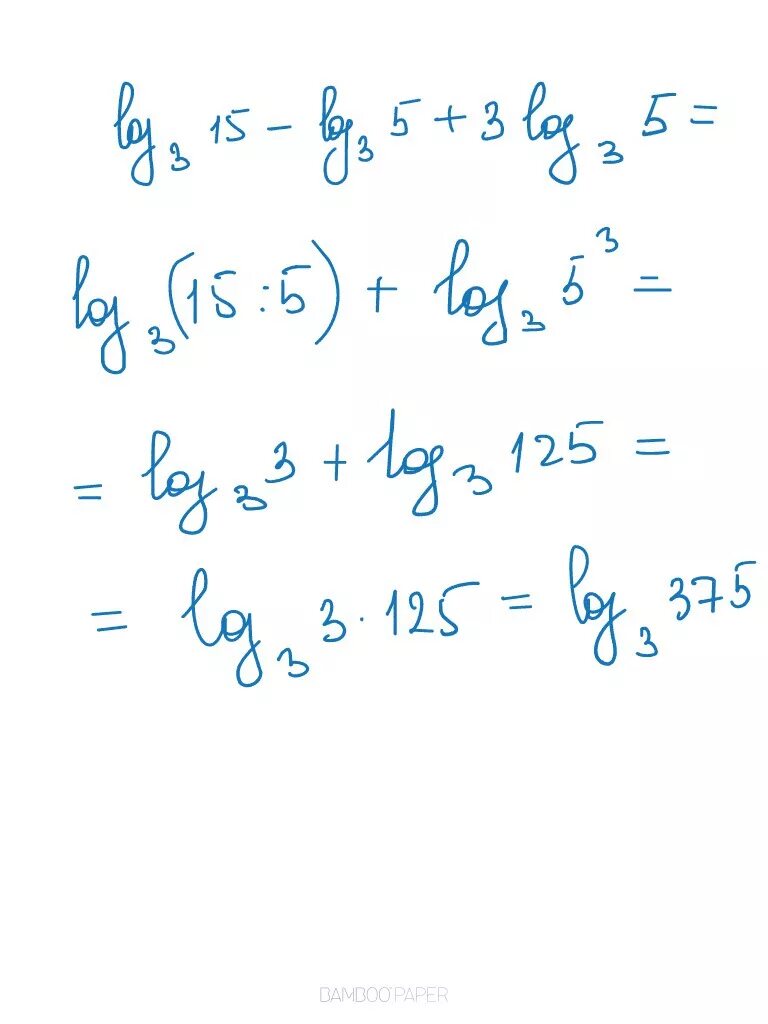 log₃ 15 - log₃ 5 + 3 log₃ 5 =
log₃ (15 : 5) + log₃ 5³ =
= log₃ 3 + log₃ 125 =
= log₃ 3 · 125 = log₃ 375
BAMBOO PAPER